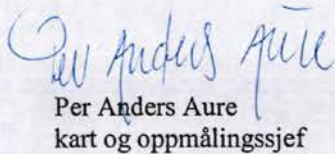 Per Anders Aure
Per Anders Aure
kart og oppmålingssjef